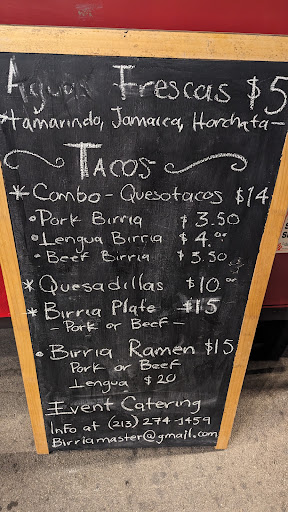 Aguas Frescas $5
*tamarindo, Jamaica, Horchata-
TACOS
*Combo - Quesotacos $14
•Pork Birria $3.50
•Lengua Birria $4.00
•Beef Birria $3.50
*Quesadillas $10.00
*Birria Plate $15
-Pork or Beef-
•Birria Ramen $15
Pork or Beef
Lengua $20
Event Catering
Info at (213) 274-1459
Birriamaster@gmail.com